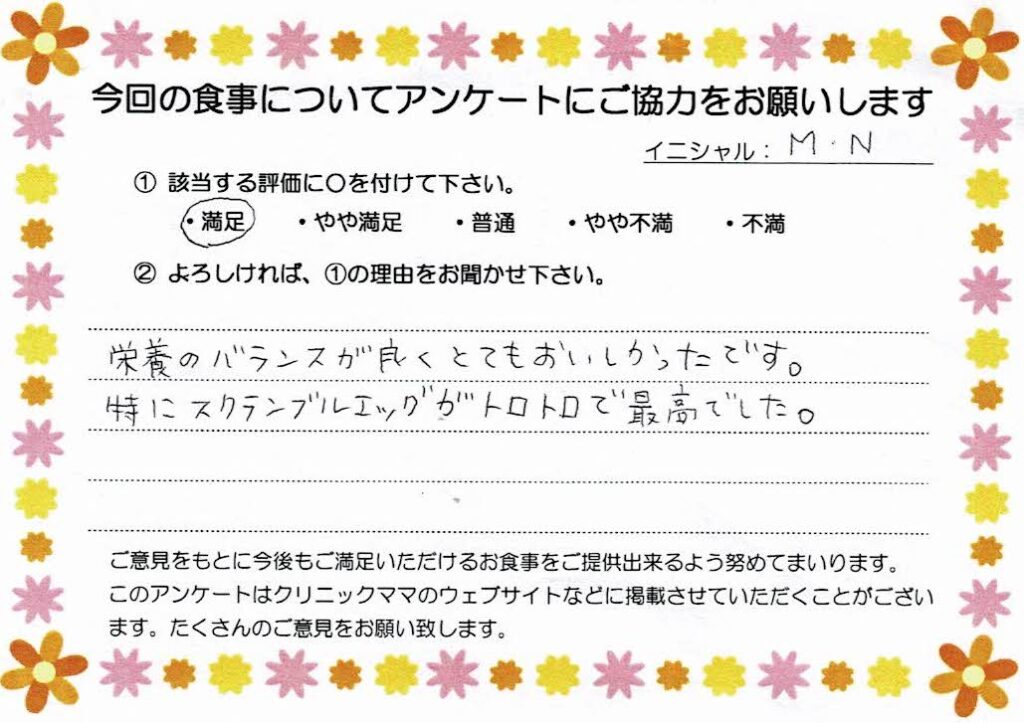 今回の食事についてアンケートにご協力をお願いします
イニシャル： M・N
① 該当する評価に〇を付けて下さい。
・満足 ・やや満足 ・普通 ・やや不満 ・不満
② よろしければ、①の理由をお聞かせ下さい。
栄養のバランスが良くとてもおいしかったです。
特にスクランブルエッグがトロトロで最高でした。
ご意見をもとに今後もご満足いただけるお食事をご提供出来るよう努めてまいります。
このアンケートはクリニックママのウェブサイトなどに掲載させていただくことがござい
ます。たくさんのご意見をお願い致します。